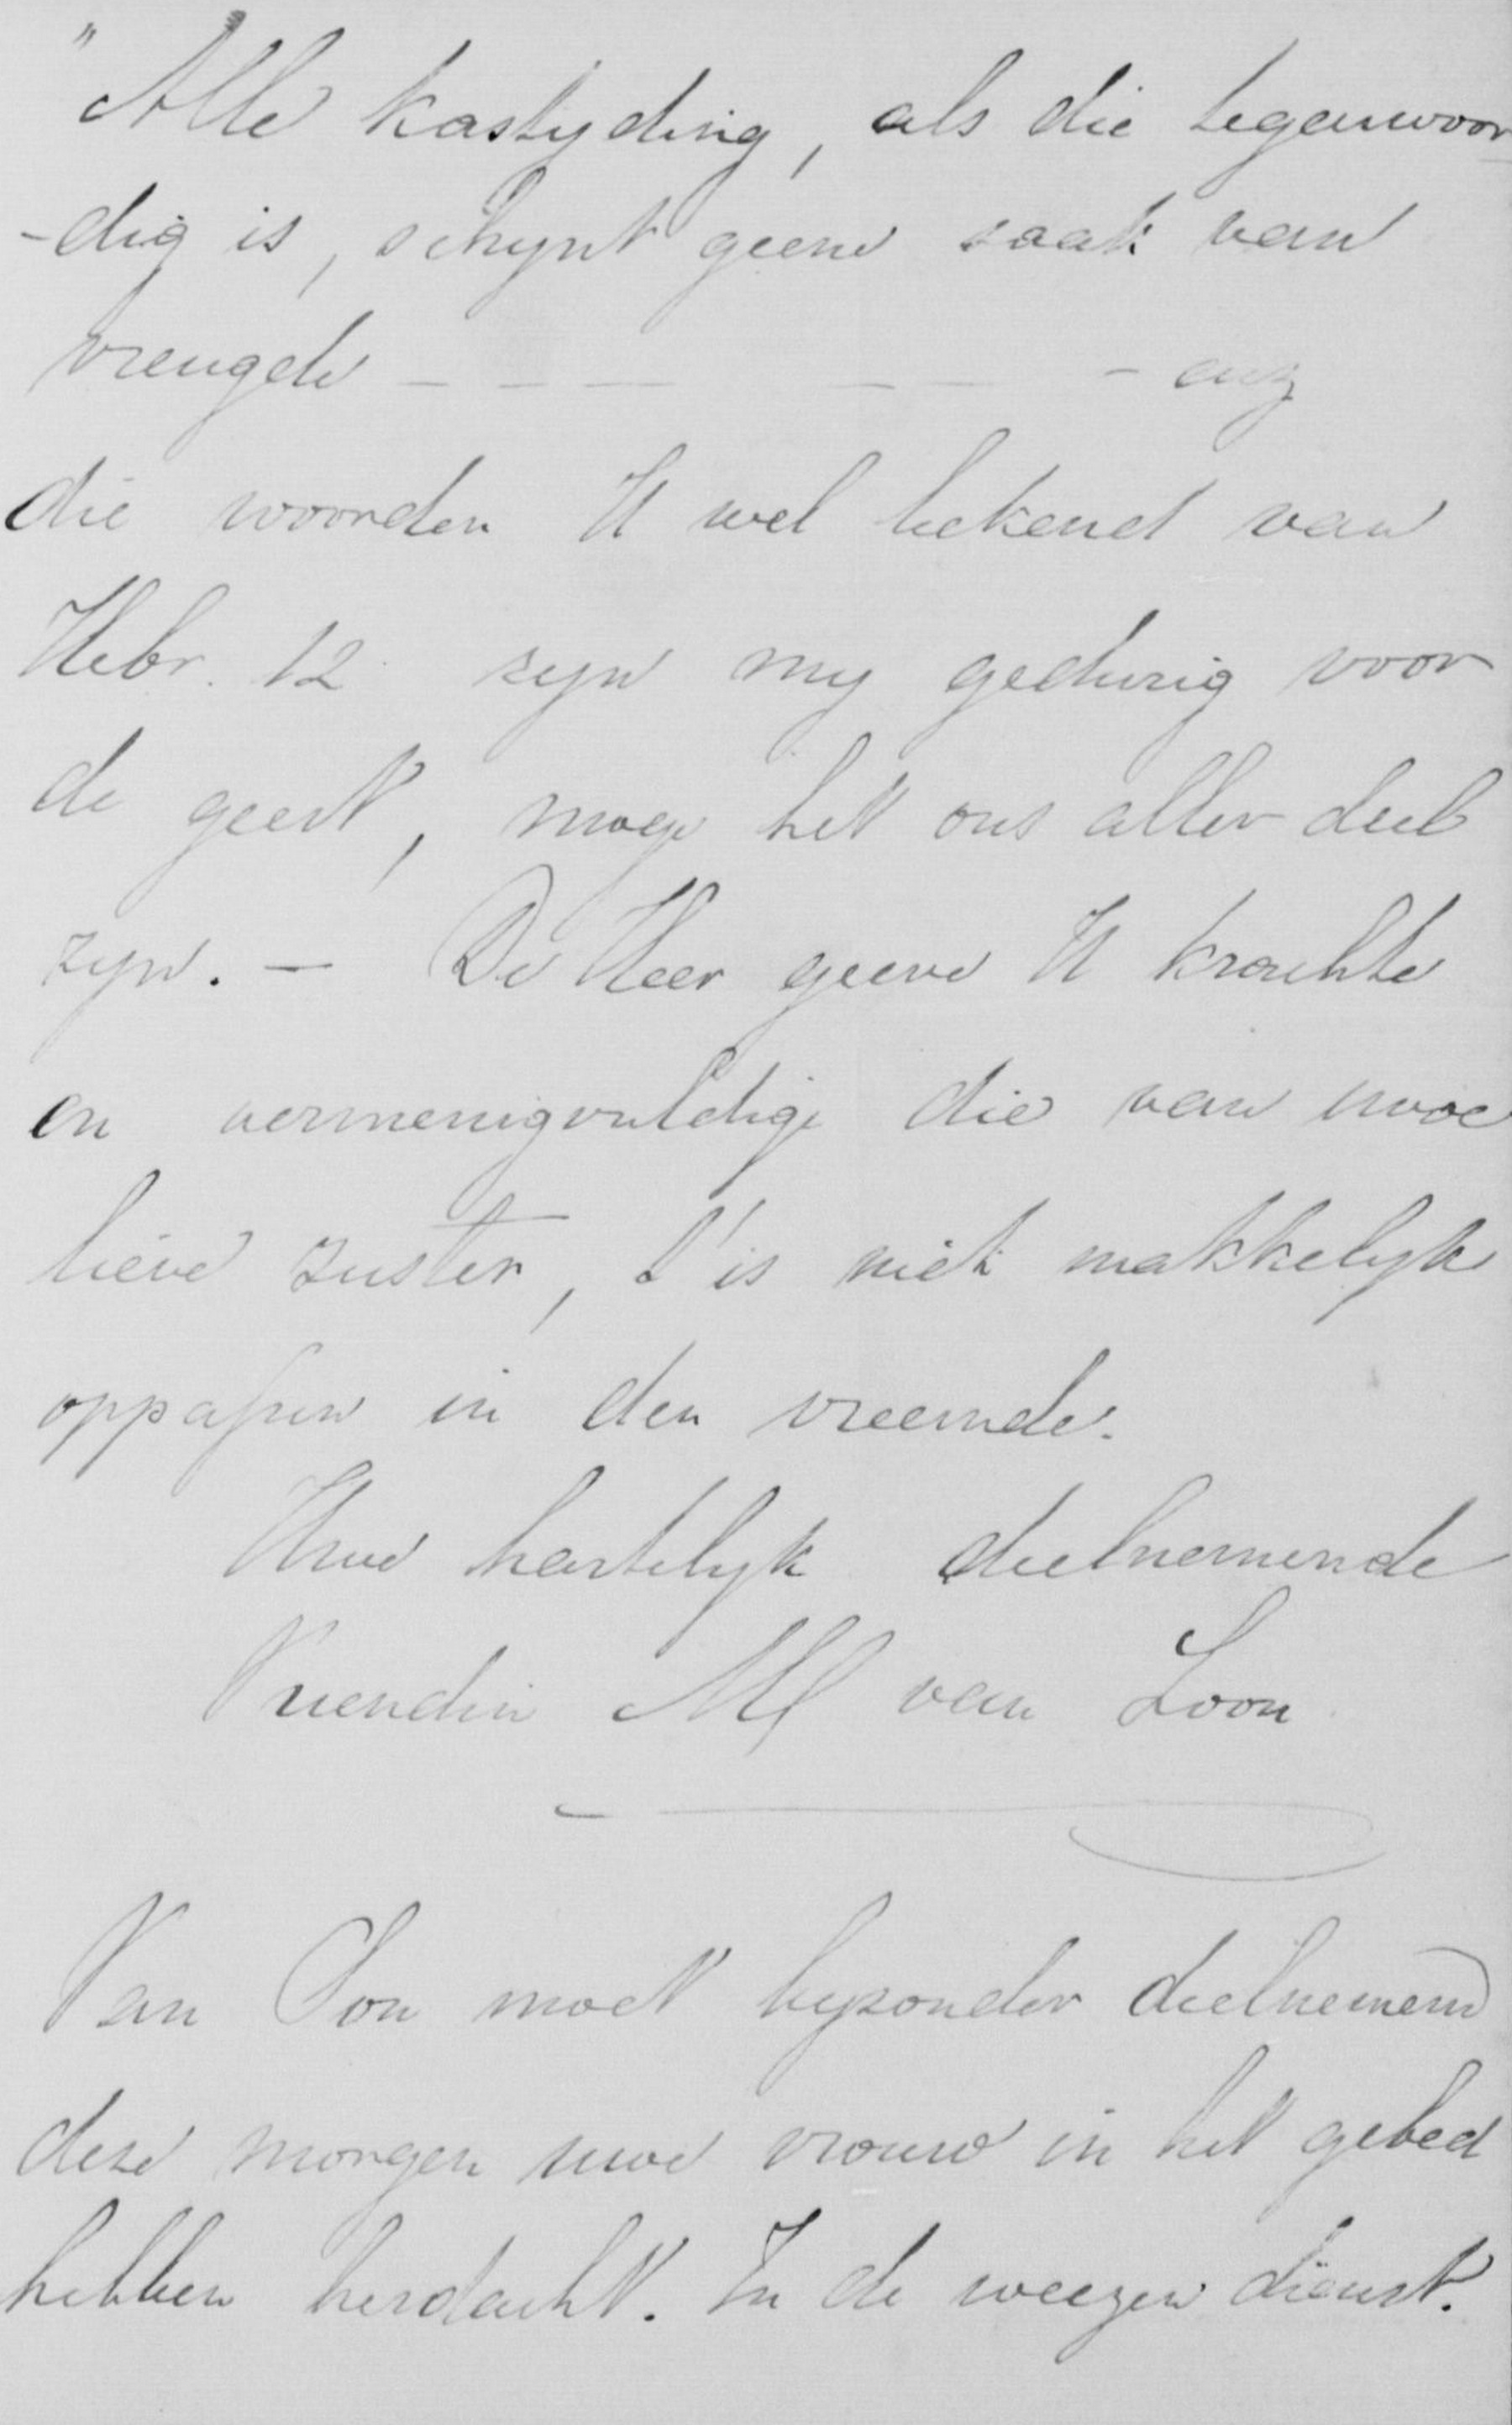 "Alle kastyding, als die tegenwoor-
-dig is, schynt geene zaak van
vreugde - - - - - - enz
die woorden U wel bekend van
Hebr. 12 zyn my gedurig voor
de geest, moge het ons aller deel
zyn. - De Heer geeve U krachte
en vermenigvuldige die van uwe
lieve zuster, t'is niet makkelyk
oppassen in den vreemde.
Uwe hartelyk deelnemende
Vriendin MS van Loon
Van Son moet byzonder deelnemend
deze morgen uwe vrouw in het gebed
hebben herdacht. In de weezen dienst.